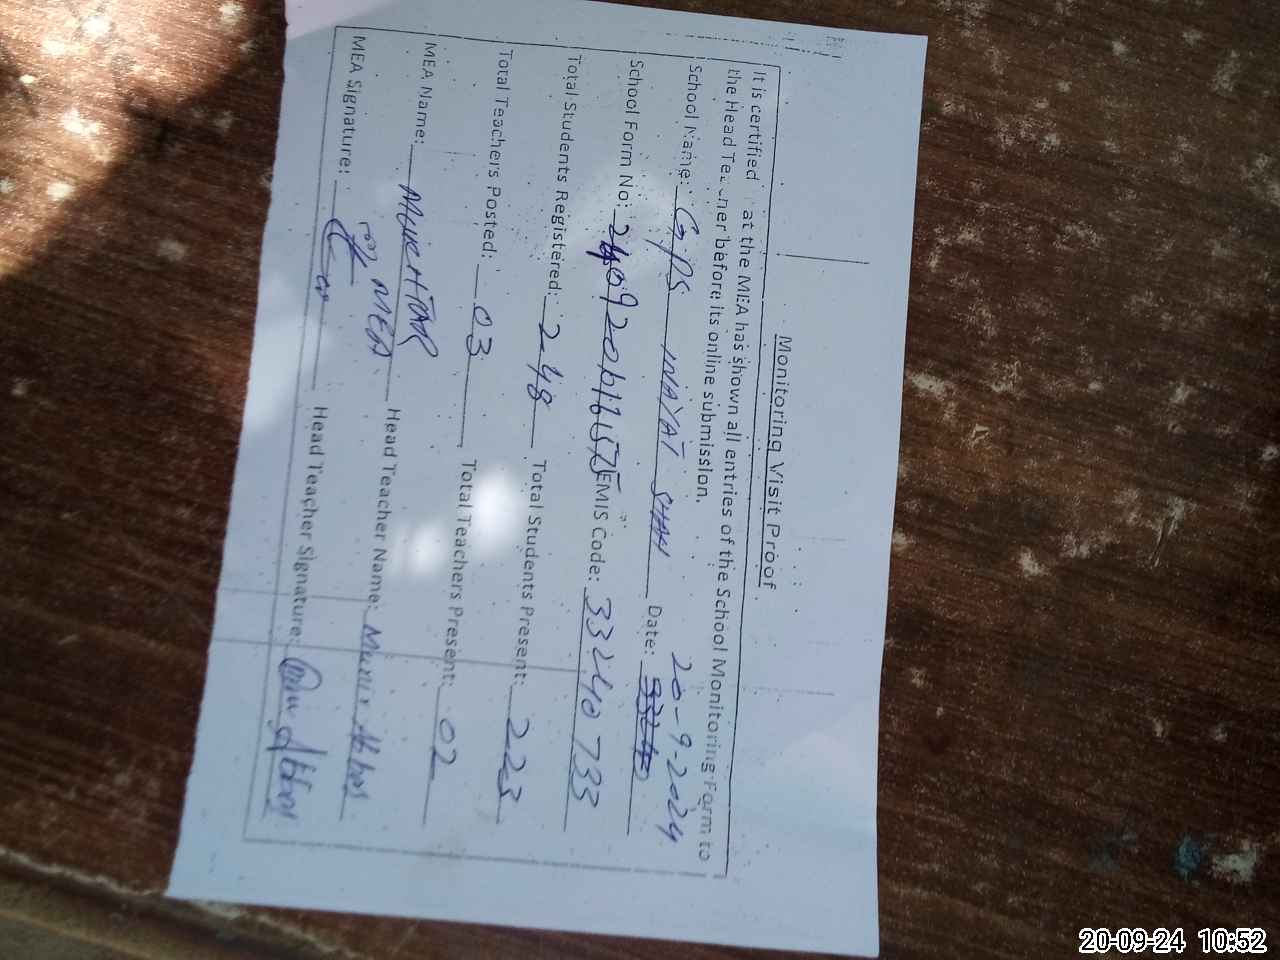 Monitoring Visit Proof
It is certified at the MEA has shown all entries of the School Monitoring Form to
the Head Teacher before its online submission.
School Name: GPS INAYAT SHAH Date: 20-9-2024
School Form No: EMIS Code: 33240733
Total Students Registered: 248 Total Students Present: 223
Total Teachers Posted: 03 Total Teachers Present: 02
MEA Name: MUKHTAR Head Teacher Name: Munir Abbas
MEA
MEA Signature: Head Teacher Signature: Abbas
20-09-24 10:52